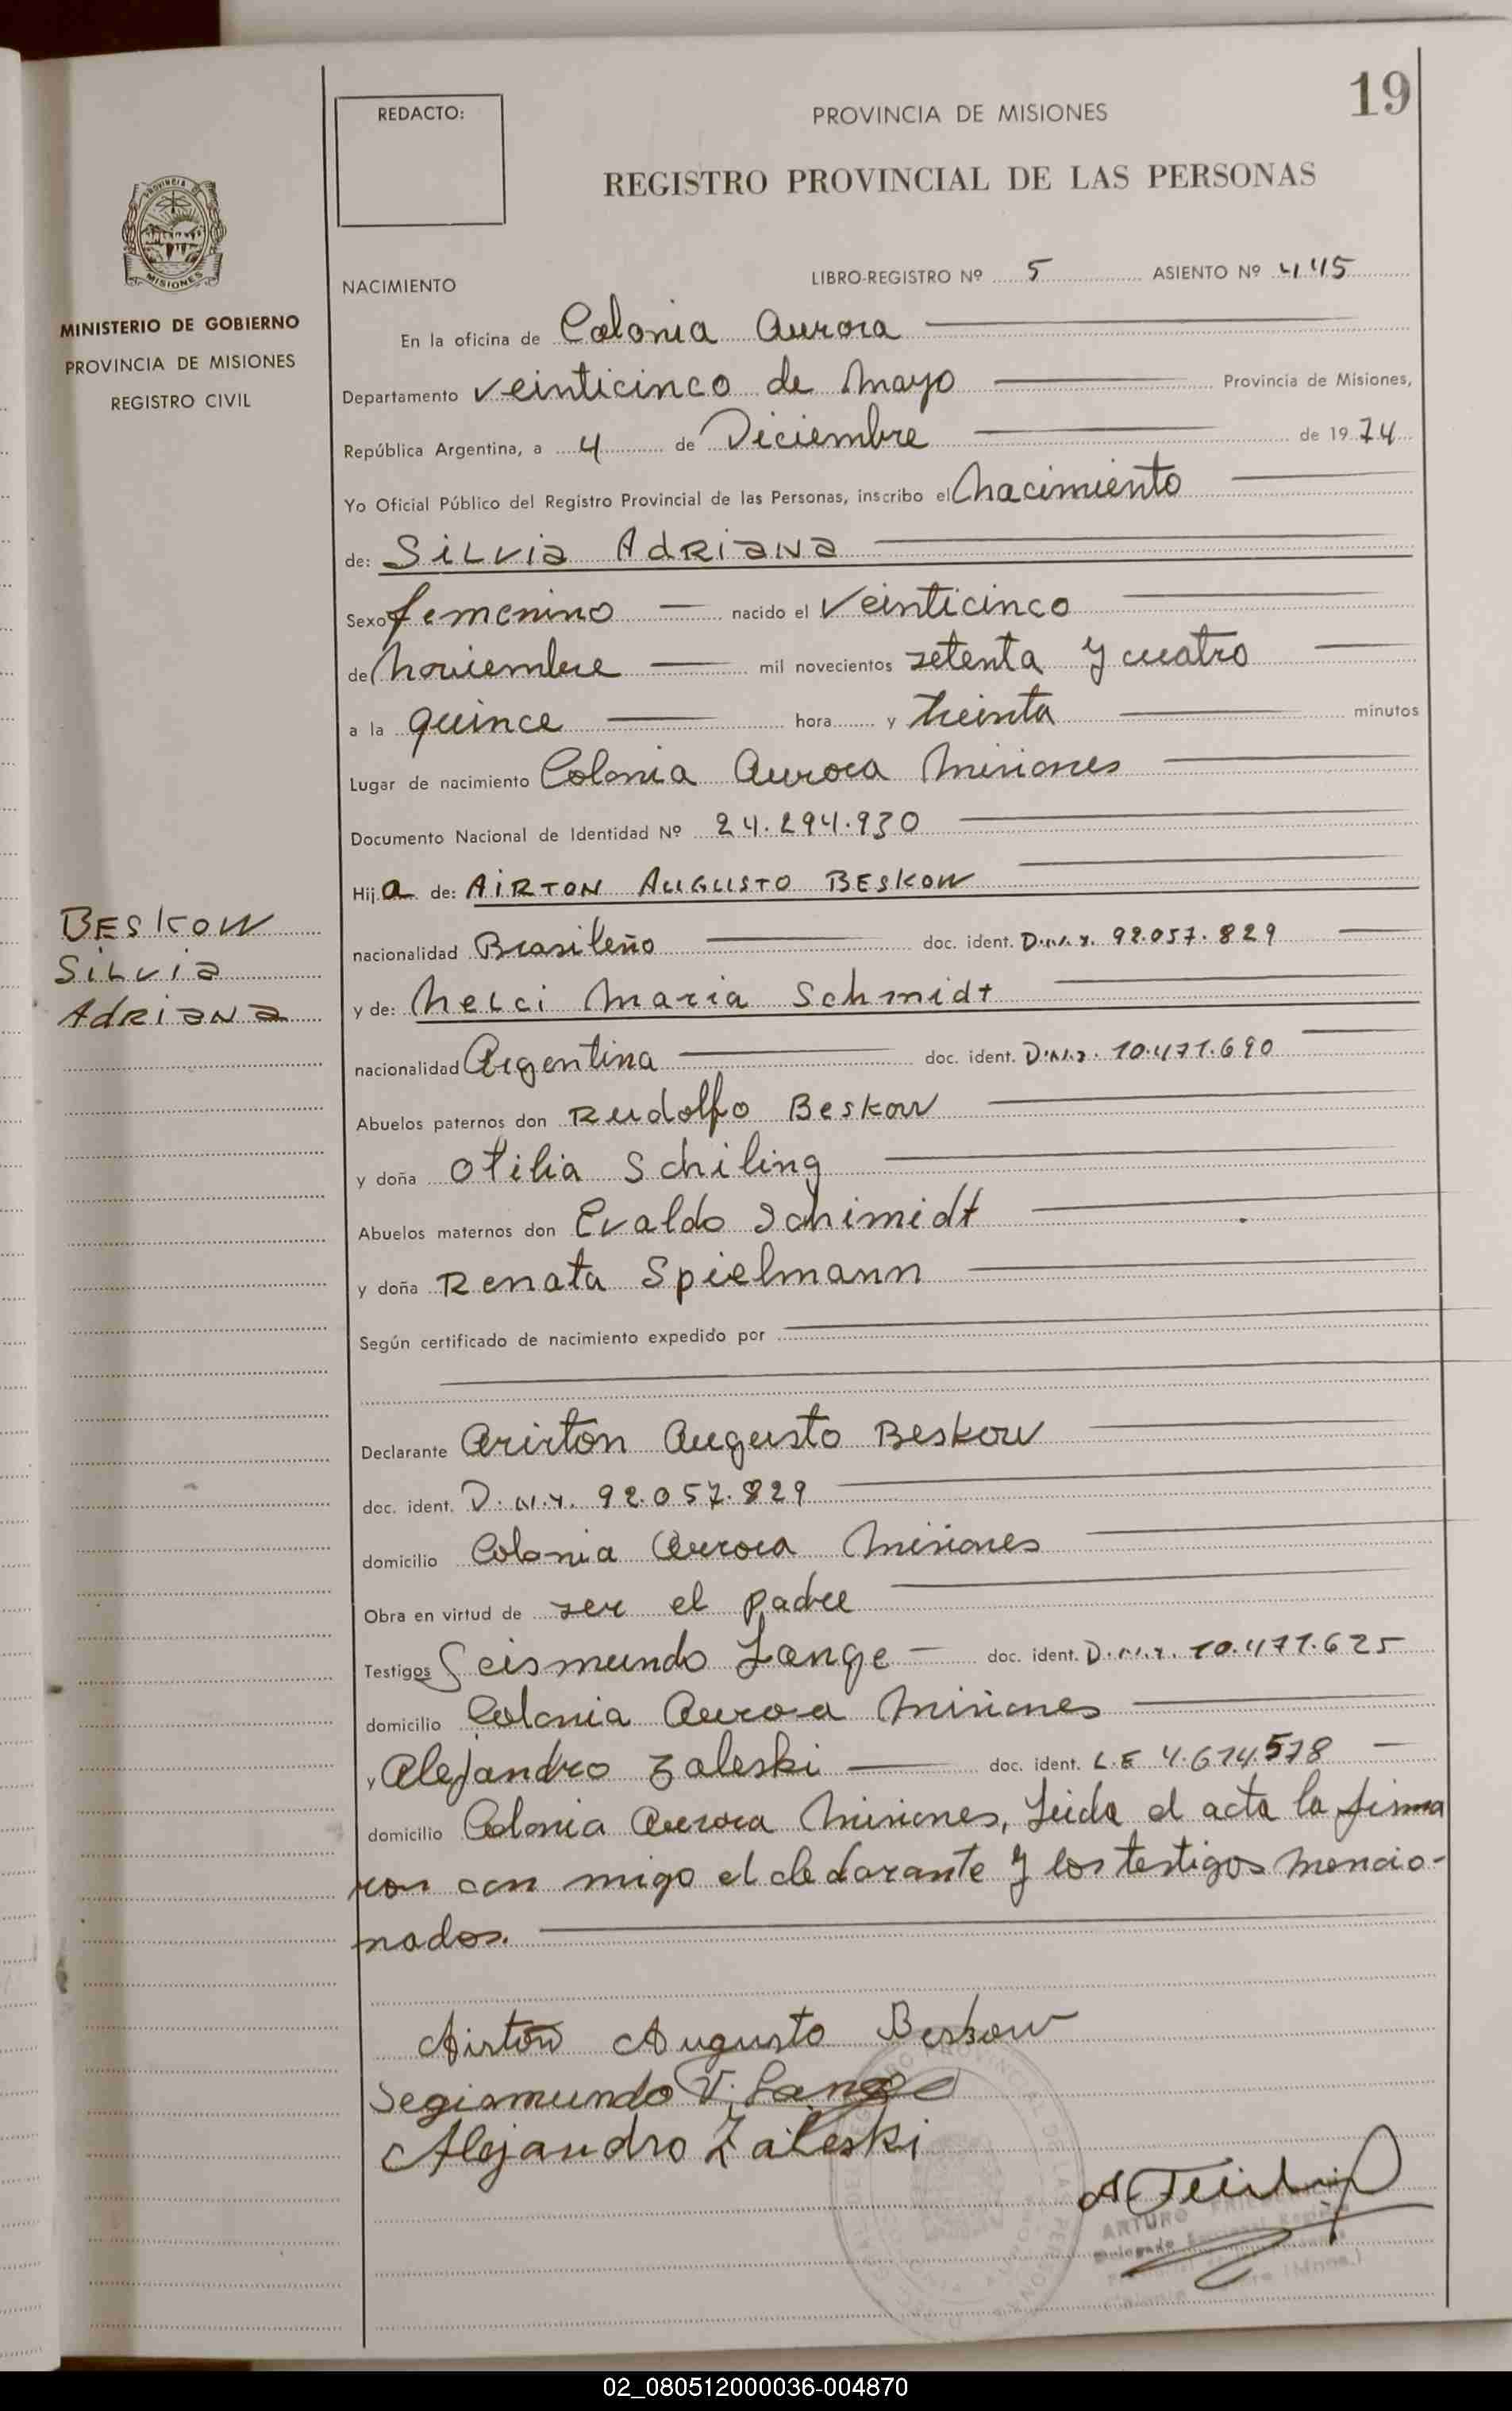 19
REDACTO:
PROVINCIA DE MISIONES
REGISTRO PROVINCIAL DE LAS PERSONAS
PROVINCIA DE
MISIONES
MINISTERIO DE GOBIERNO
PROVINCIA DE MISIONES
REGISTRO CIVIL
NACIMIENTO LIBRO-REGISTRO Nº 5 ASIENTO Nº 445
En la oficina de Colonia Aurora
Departamento veinticinco de Mayo Provincia de Misiones,
República Argentina, a 4 de Diciembre de 1974
Yo Oficial Público del Registro Provincial de las Personas, inscribo el Nacimiento
de: SILVIA ADRIANA
Sexo femenino nacido el Veinticinco
de Noviembre mil novecientos setenta y cuatro
a la quince hora y treinta minutos
Lugar de nacimiento Colonia Aurora Misiones
Documento Nacional de Identidad Nº 24.294.930
Hija de: AIRTON AUGUSTO BESKOW
nacionalidad Brasileño doc. ident. D.N.I. 92.057.829
y de: Nelci Maria Schmidt
nacionalidad Argentina doc. ident. D.N.I. 10.471.690
Abuelos paternos don Rudolfo Beskow
y doña Otilia Schiling
Abuelos maternos don Evaldo Schimidt
y doña Renata Spielmann
Según certificado de nacimiento expedido por
BESKOW
SILVIA
ADRIANA
Declarante Arirton Augusto Beskow
doc. ident. D.N.I. 92.057.829
domicilio Colonia Aurora Misiones
Obra en virtud de ser el padre
Testigos Seismundo Lange doc. ident. D.N.I. 10.471.625
domicilio Colonia Aurora Misiones
y Alejandro Zaleski doc. ident. L.E 4.674.578
domicilio Colonia Aurora Misiones, Leida el acta la firma
ron con migo el declarante y los testigos mencio-
nados.
Airton Augusto Beskow
Segismundo V. Lange
Alejandro Zaleski
ARTURO
Delegado
02_080512000036-004870